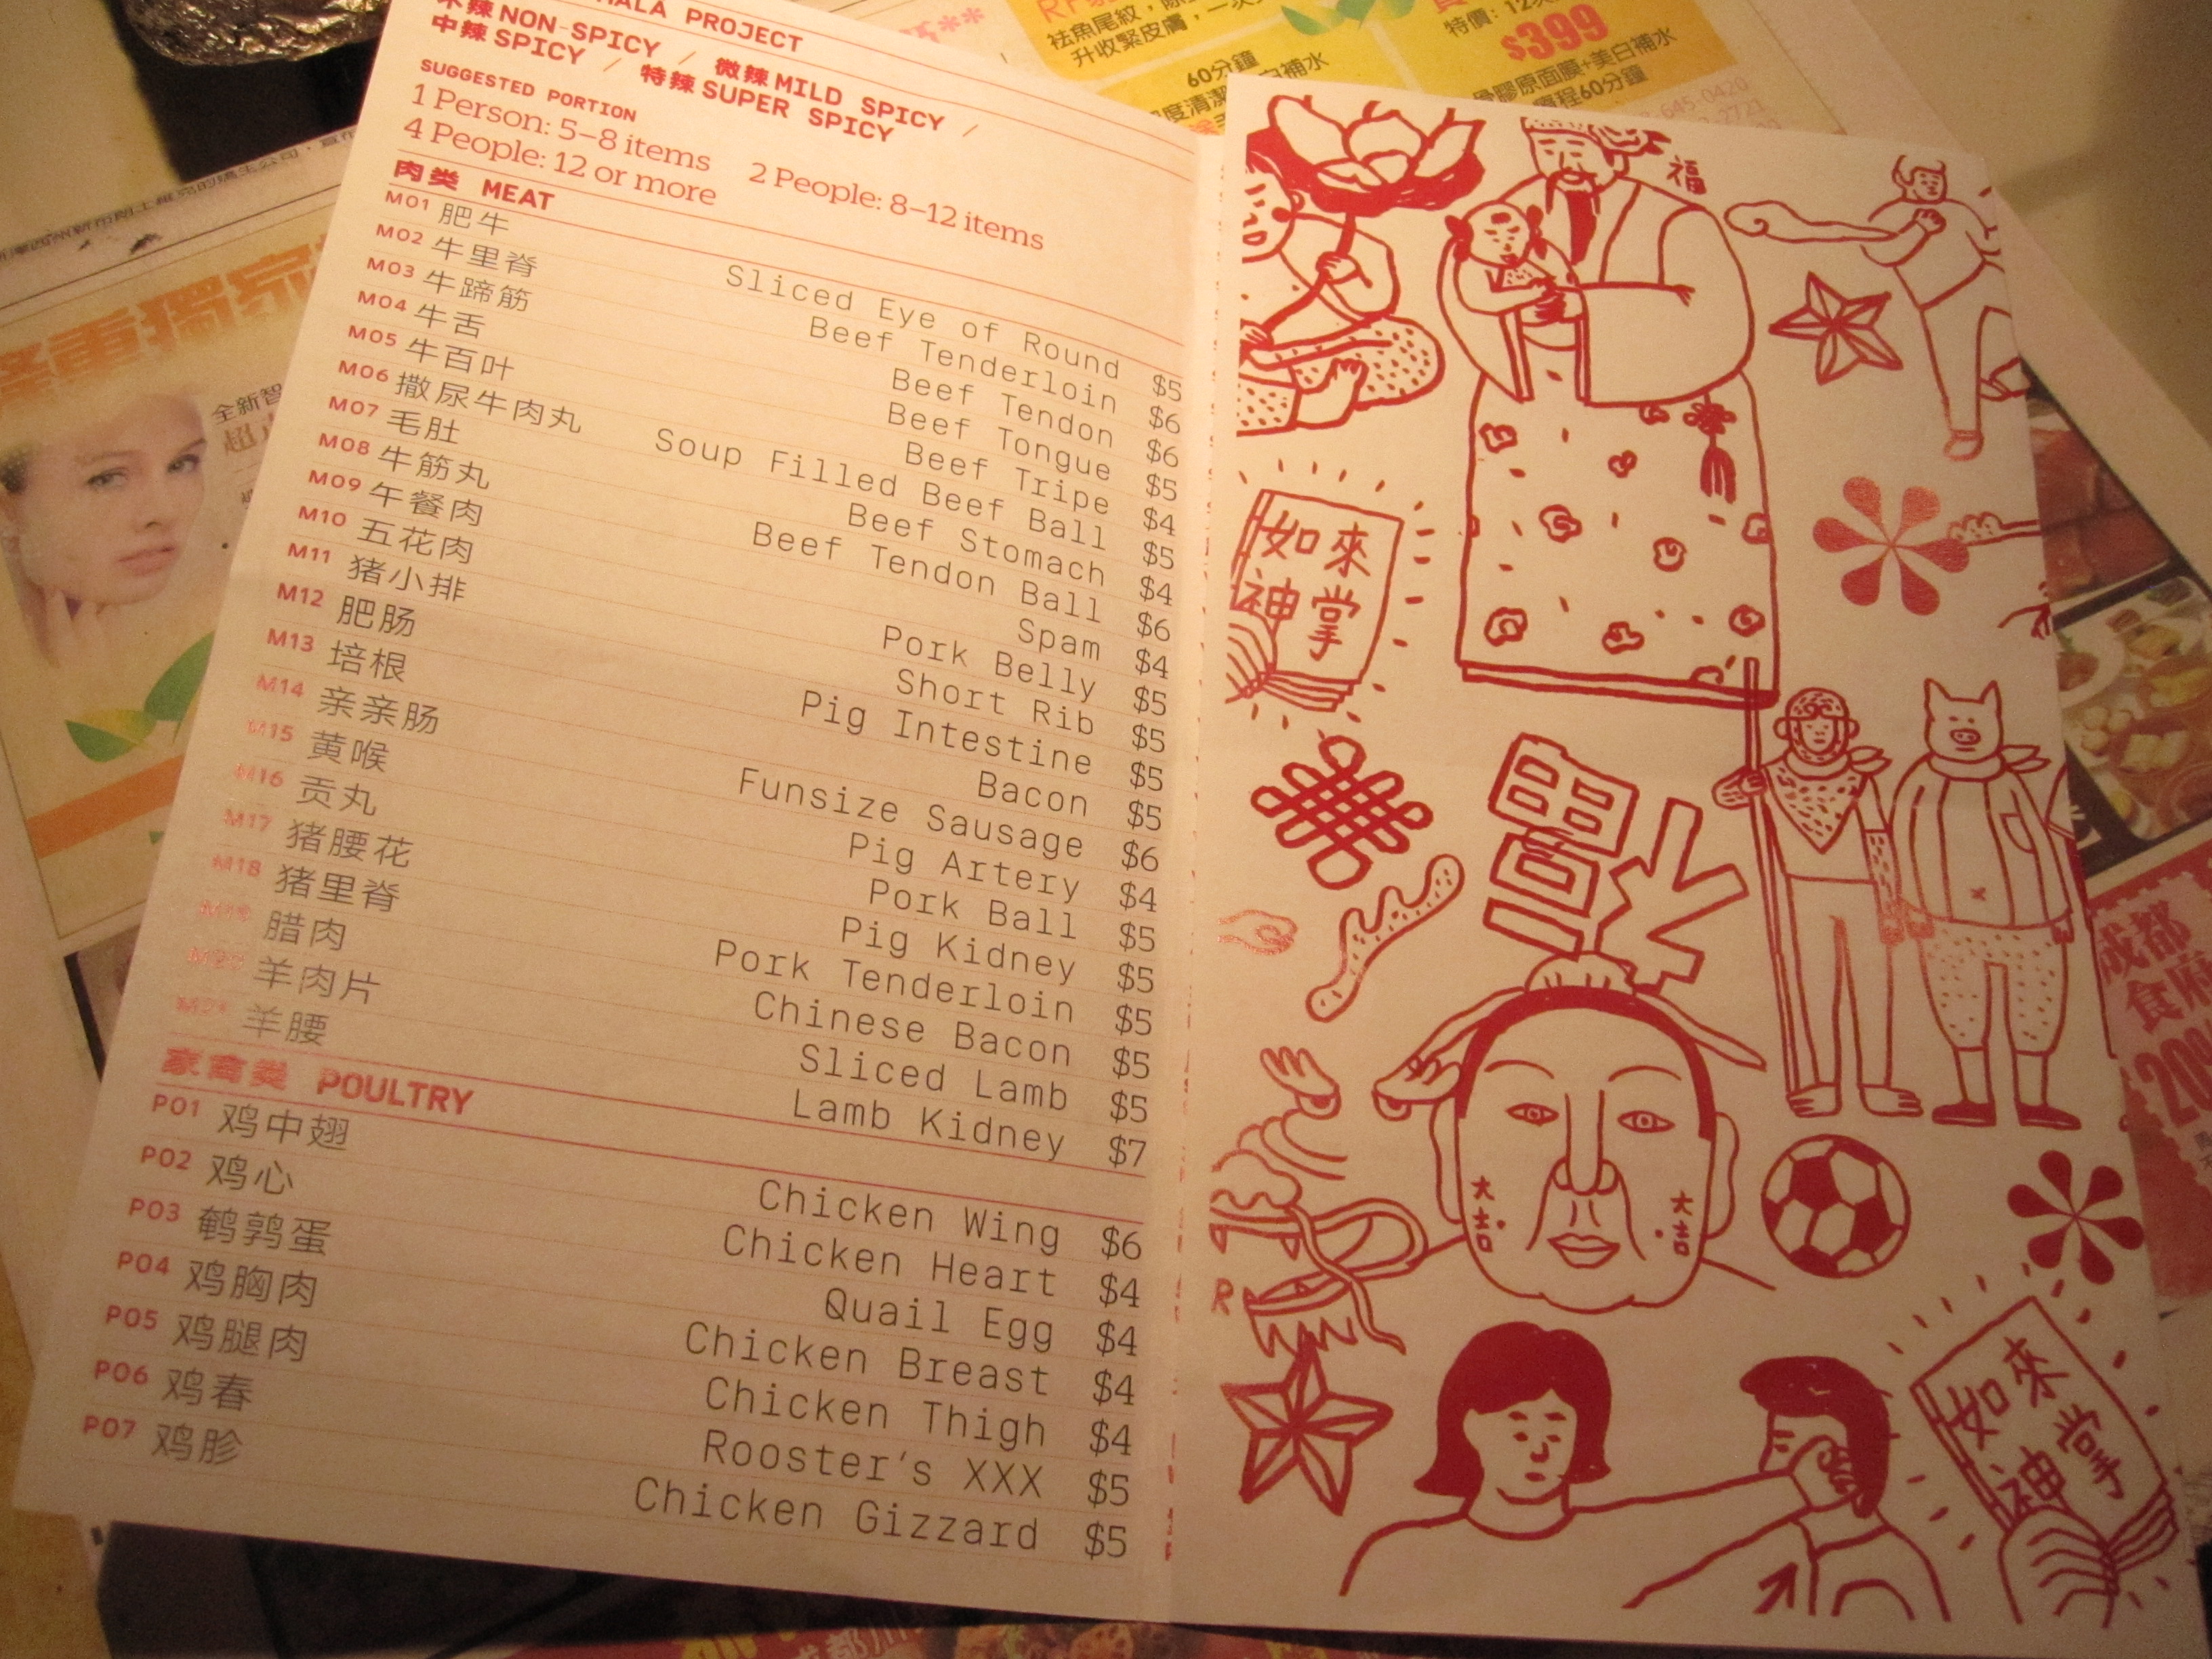 MALA PROJECT
不辣 NON-SPICY / 微辣 MILD SPICY /
中辣 SPICY / 特辣 SUPER SPICY
SUGGESTED PORTION
1 Person: 5–8 items 2 People: 8–12 items
4 People: 12 or more
肉类 MEAT
M01 肥牛 Sliced Eye of Round $5
M02 牛里脊 Beef Tenderloin $6
M03 牛蹄筋 Beef Tendon $6
M04 牛舌 Beef Tongue $5
M05 牛百叶 Beef Tripe $4
M06 撒尿牛肉丸 Soup Filled Beef Ball $5
M07 毛肚 Beef Stomach $4
M08 牛筋丸 Beef Tendon Ball $6
M09 午餐肉 Spam $4
M10 五花肉 Pork Belly $5
M11 猪小排 Short Rib $5
M12 肥肠 Pig Intestine $5
M13 培根 Bacon $5
M14 亲亲肠 Funsize Sausage $6
M15 黄喉 Pig Artery $4
M16 贡丸 Pork Ball $5
M17 猪腰花 Pig Kidney $5
M18 猪里脊 Pork Tenderloin $5
M19 腊肉 Chinese Bacon $5
M20 羊肉片 Sliced Lamb $5
M21 羊腰 Lamb Kidney $7
家禽类 POULTRY
P01 鸡中翅 Chicken Wing $6
P02 鸡心 Chicken Heart $4
P03 鹌鹑蛋 Quail Egg $4
P04 鸡胸肉 Chicken Breast $4
P05 鸡腿肉 Chicken Thigh $4
P06 鸡春 Rooster's XXX $5
P07 鸡胗 Chicken Gizzard $5
福
如來
神掌
福
大吉
大吉
R
如來
神掌
祛魚尾紋，
升收緊皮膚，一次
60分鐘
白補水
特價：12次
$399
骨膠原面膜+美白補水
療程60分鐘
645-0420
2721
全新智
成都
食府
200